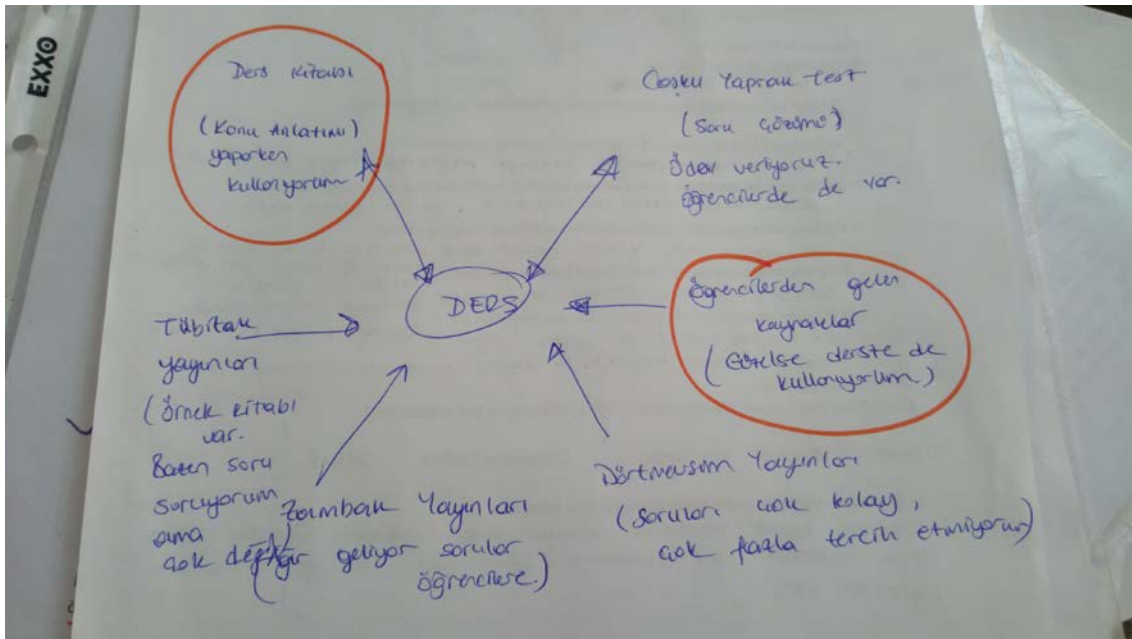 EXXO
Ders Kitabı
(Konu Anlatımı)
yaparken
kullanıyorum
Coşku Yaprak test
(Soru çözümü)
Ödev veriyoruz.
Öğrencilerde de var.
DERS
Öğrencilerden gelen
kaynaklar
(Güzelse derste de
kullanıyorum.)
Tübitak
yayınları
(Örnek kitabı
var.
Bazen soru
soruyorum
ama
çok değil)
Zambak Yayınları
(Ağır geliyor sorular
öğrencilere.)
Dörtmevsim Yayınları
(Soruları çok kolay,
çok fazla tercih etmiyorum)